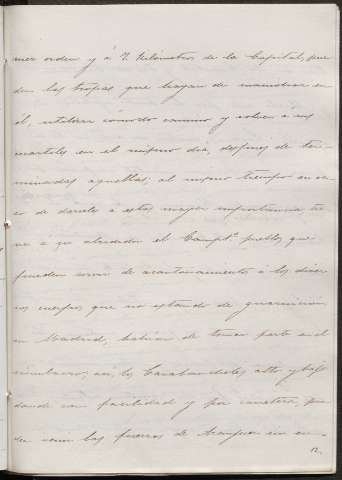 mer orden y á 7 Kilómetros de la Capital, pue
den las tropas que hayan de maniobrar en
él, utilizar cómodo camino y volver a sus
cuarteles en el mismo dia, despues de ter-
minadas aquellas; al mismo tiempo en ca
so de darseles a estas mayor importancia, tie
ne a su alrededor el Campto. pueblos que
pueden servir de acantonamiento á los diver
sos cuerpos que no estando de guarnicion
en Madrid, habian de tomar parte en el
simulacro; asi los Carabancheles alto y bajo
donde con facilidad y por carretera, pue
den venir las fuerzas de Aranjuez en
12.